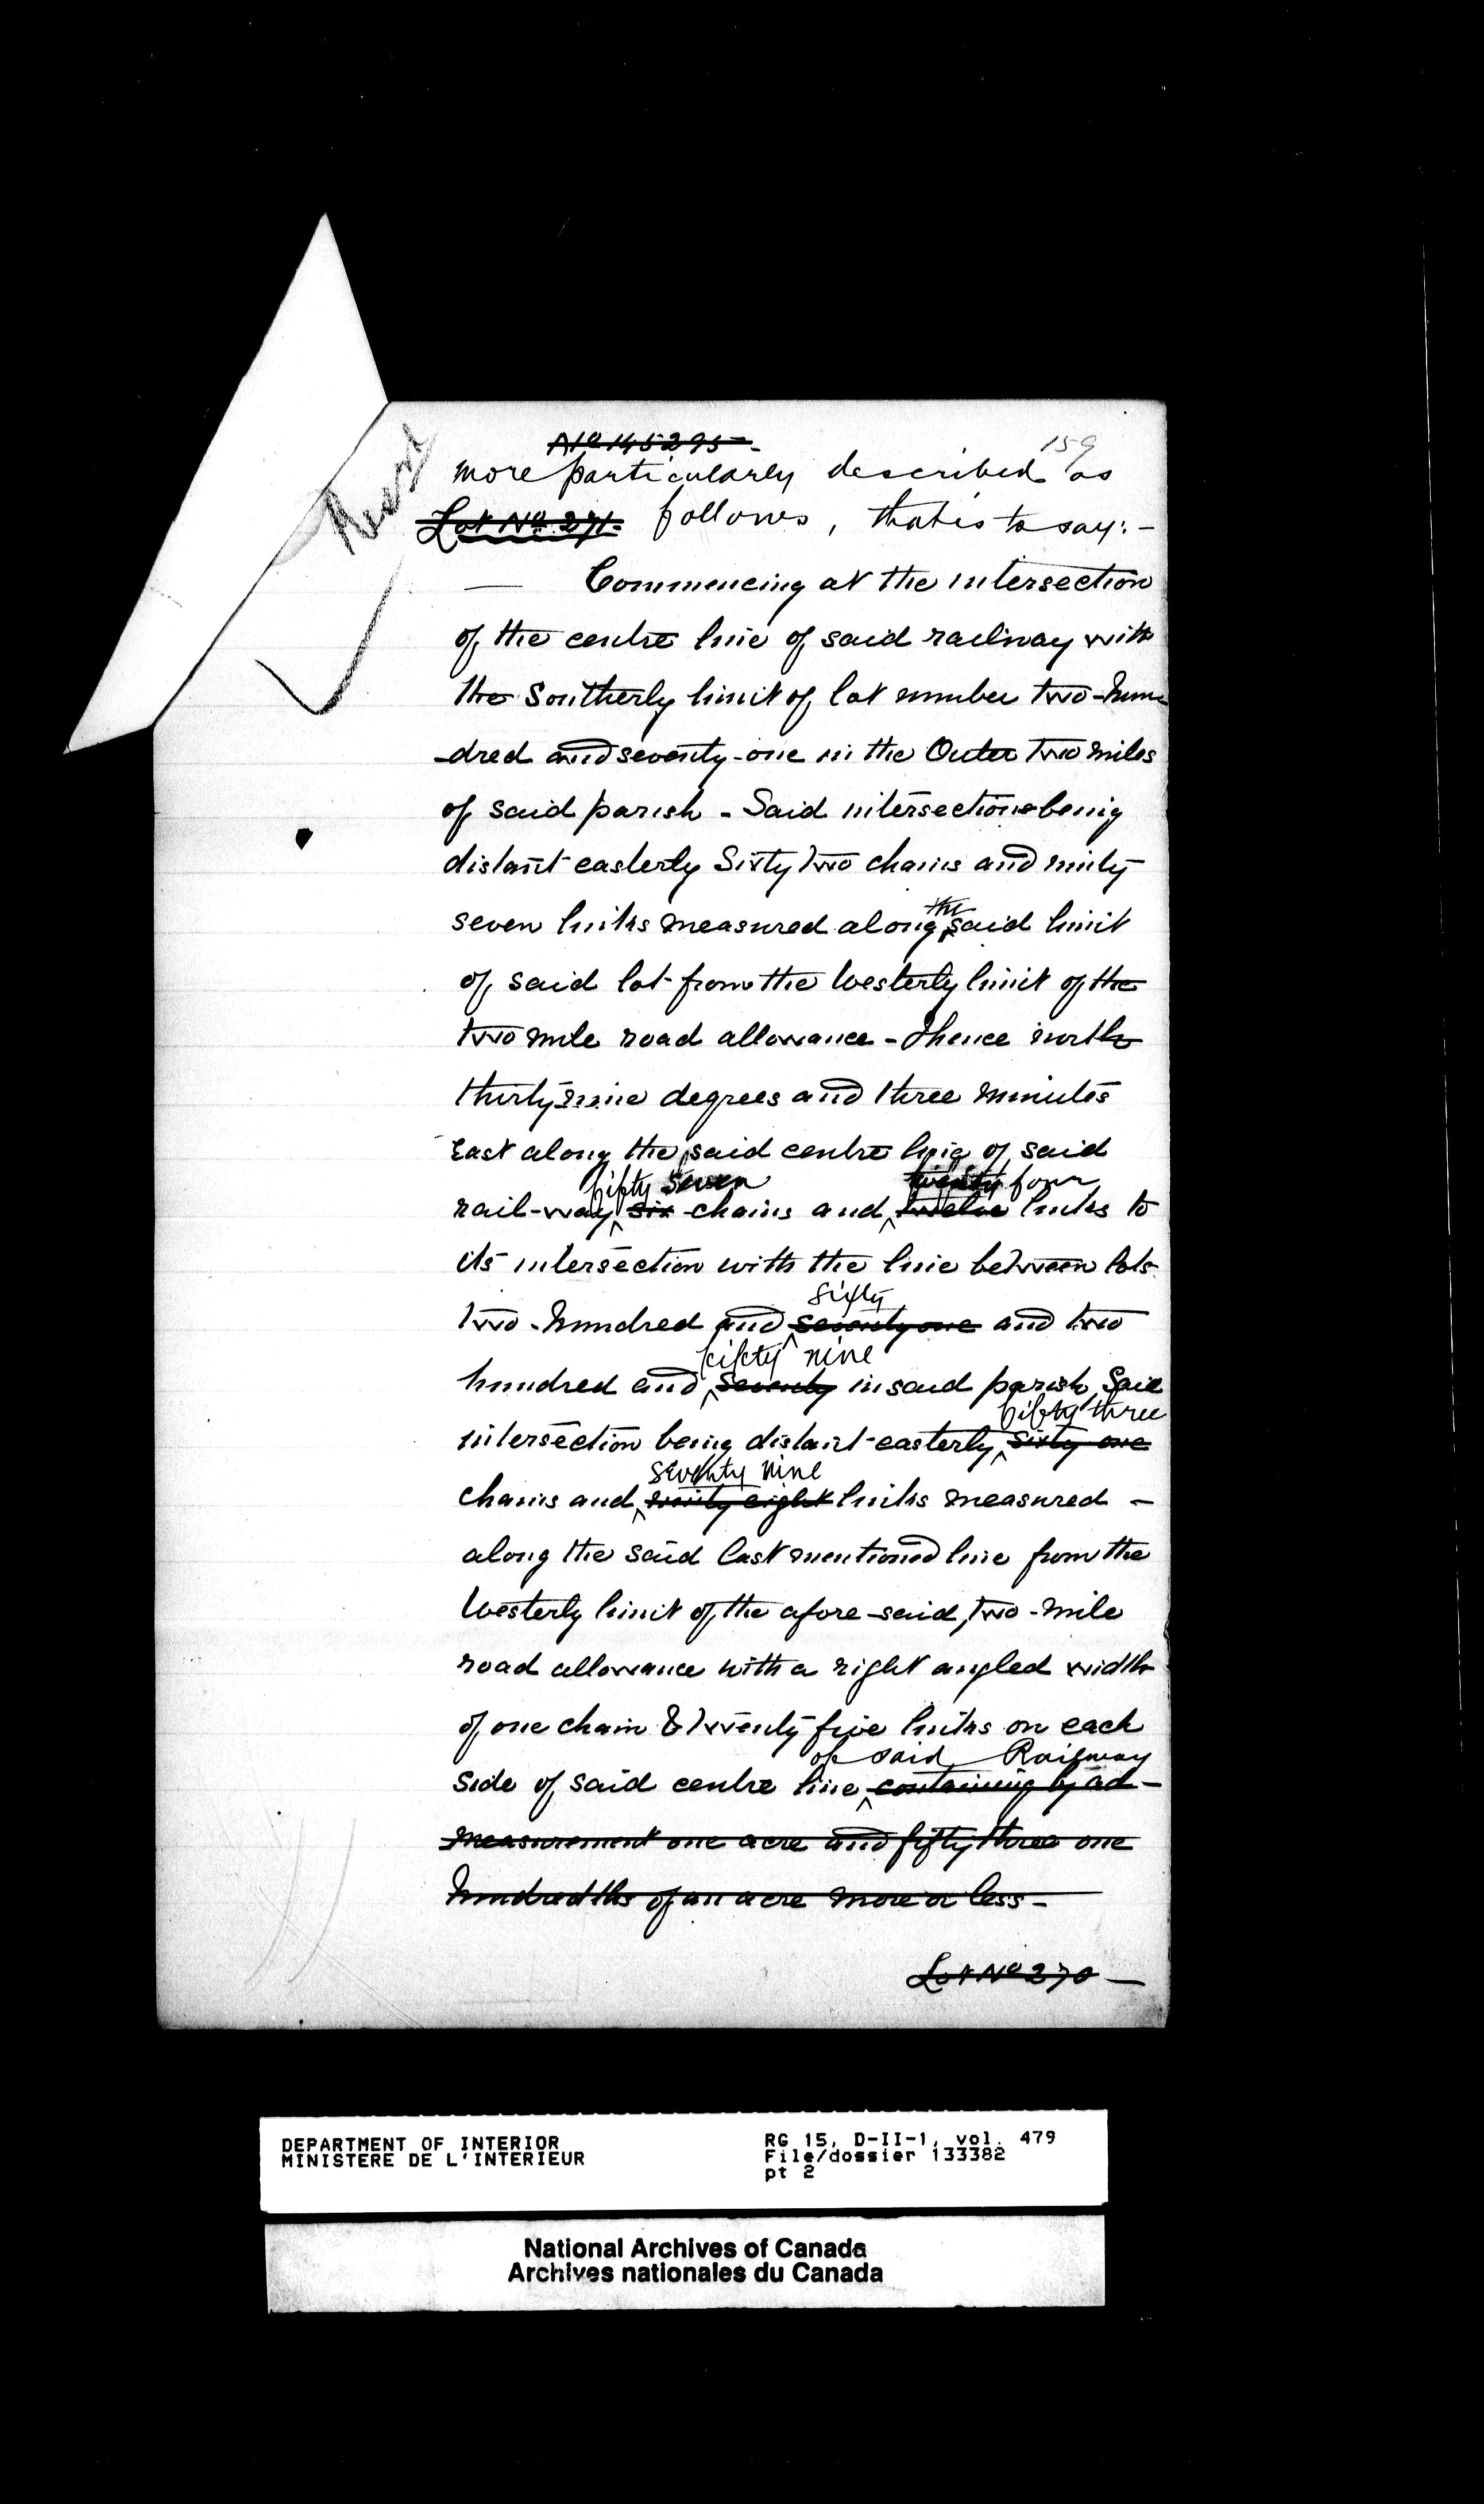 No 145295 -
159
more particularly described as
Lot No. 271. follows, that is to say: -
— Commencing at the intersection
of the centre line of said railway with
the Southerly limit of lot number two-hun-
-dred and seventy-one in the Outer two miles
of said parish - Said intersection being
distant easterly Sixty two chains and ninty
the
seven links measured along said limit
of said lot from the Westerly limit of the
two mile road allowance - Thence north
thirty nine degrees and three minutes
East along the said centre line of said
fifty seven twenty four
rail-way six chains and twelve links to
its intersection with the line between lots
sixty
two-hundred and seventy one and two
fifty nine
hundred and seventy in said parish, Said
fifty three
intersection being distant easterly sixty one
seventy nine
chains and ninty eight links measured -
along the said last mentioned line from the
Westerly limit of the afore-said, two-mile
road allowance with a right angled width
of one chain & twenty five links on each
of said Railway
side of said centre line containing by ad-
measurement one acre and fifty three one
hundredths of an acre more or less -
Lot No 270 -
DEPARTMENT OF INTERIOR
MINISTERE DE L'INTERIEUR
RG 15, D-II-1, vol. 479
File/dossier 133382
pt 2
National Archives of Canada
Archives nationales du Canada